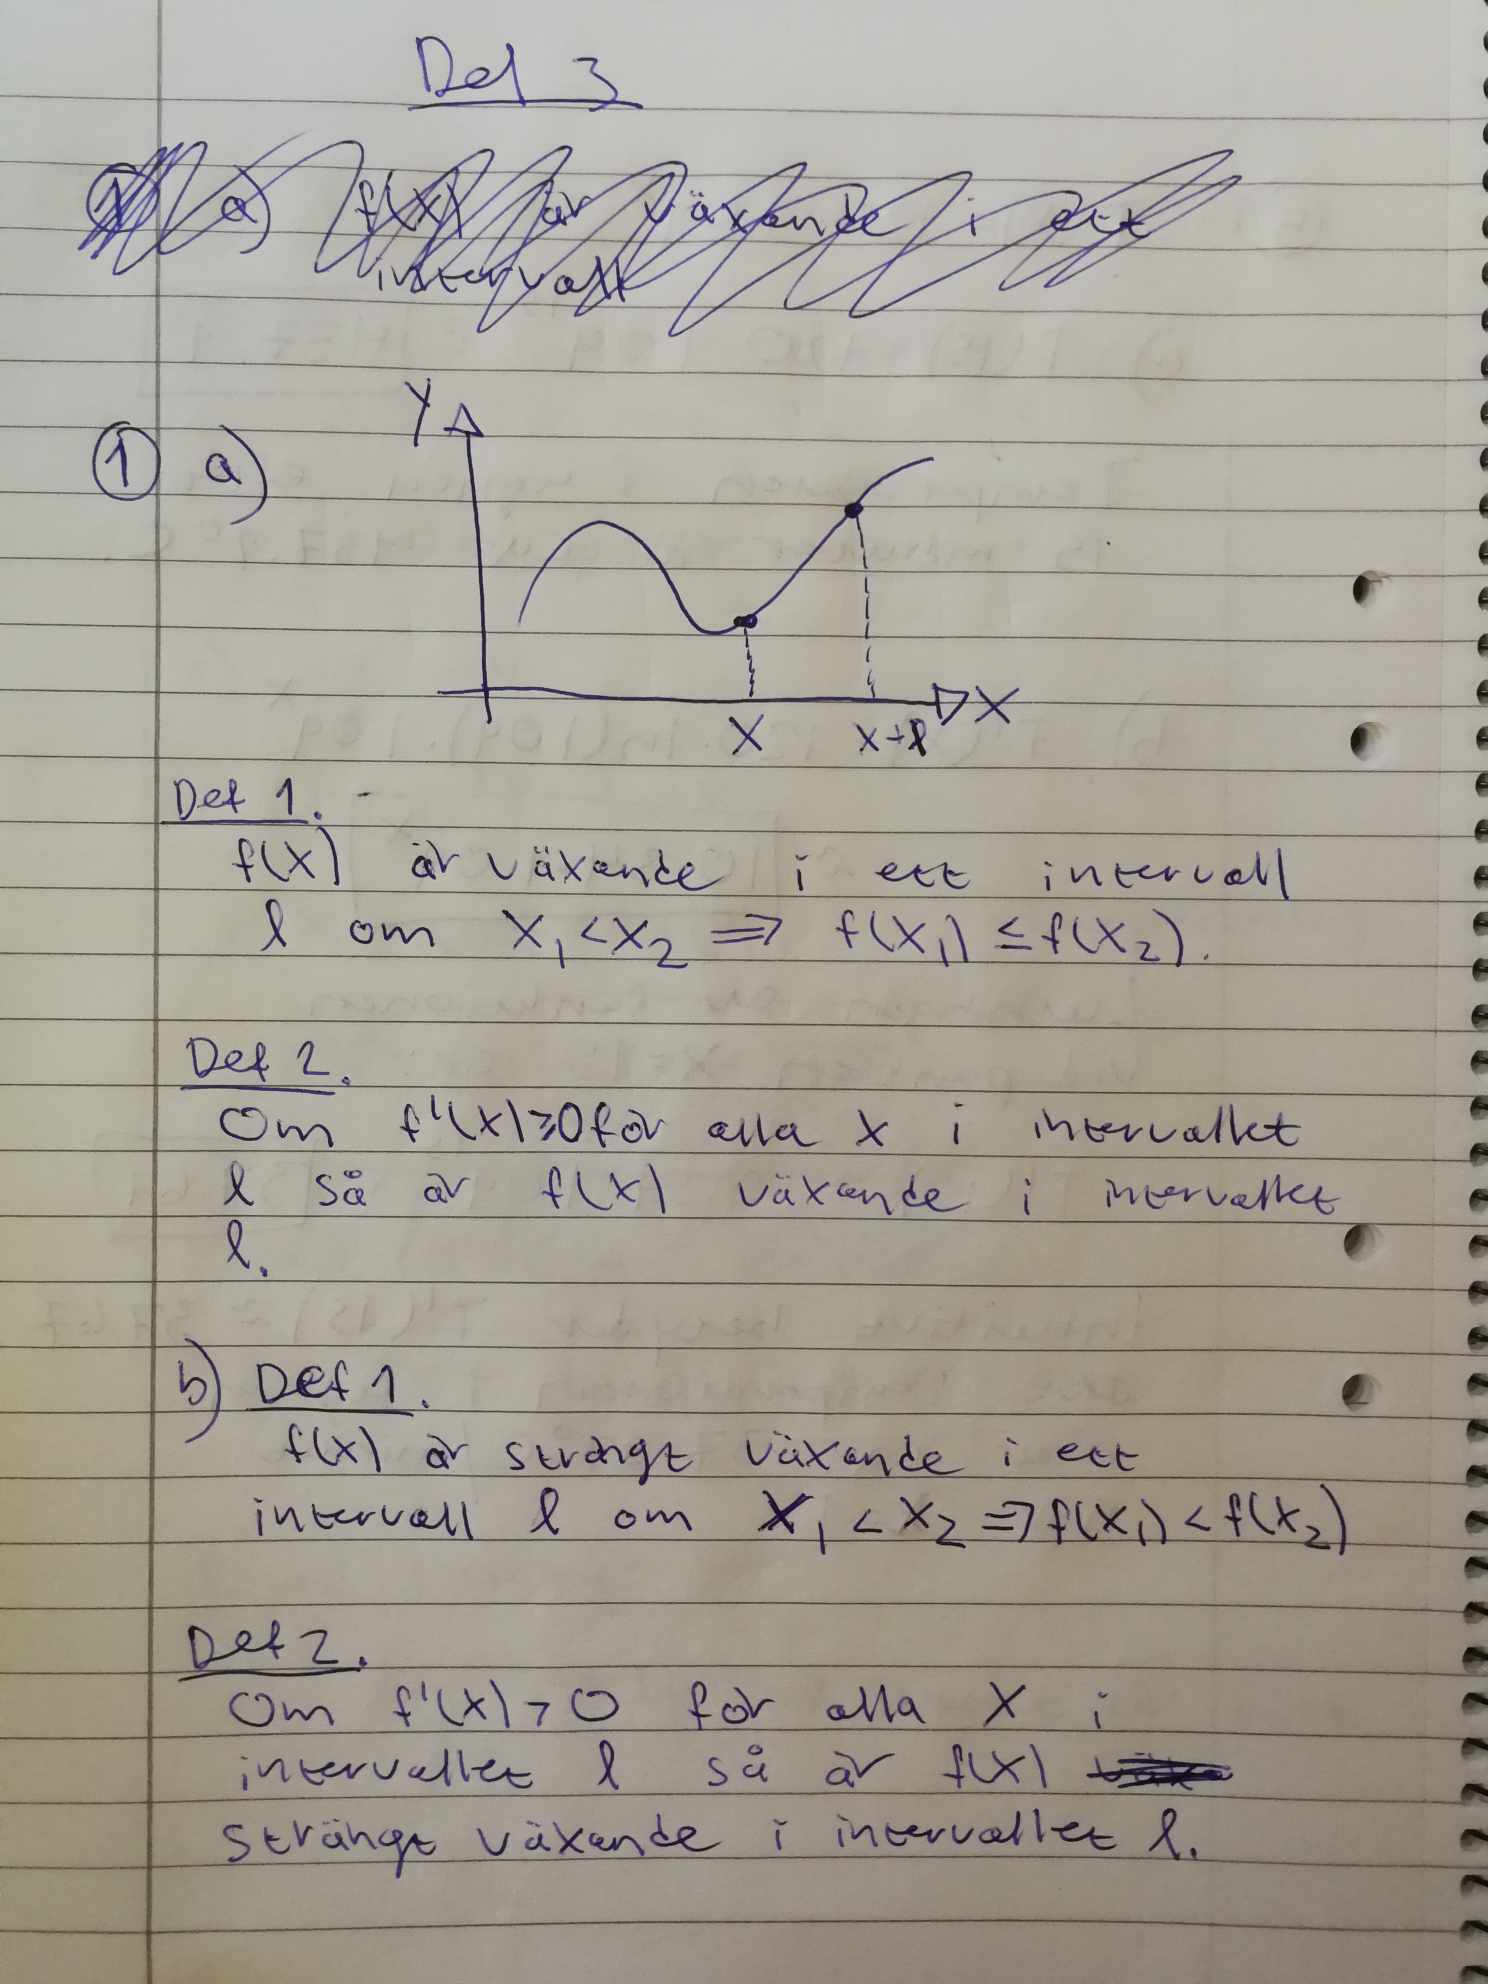 Del 3
1 a) f(x) är växande i ett
intervall
1 a)
Y
X
x
x+l
Def 1.
f(x) är växande i ett intervall
l om x₁<x₂ => f(x₁) ≤ f(x₂).
Def 2.
Om f'(x)≥0 för alla x i intervallet
l så är f(x) växande i intervallet
l.
b) Def 1.
f(x) är strängt växande i ett
intervall l om x₁ < x₂ => f(x₁) < f(x₂)
Def 2.
Om f'(x) > 0 för alla x i
intervallet l så är f(x)
strängt växande i intervallet l.